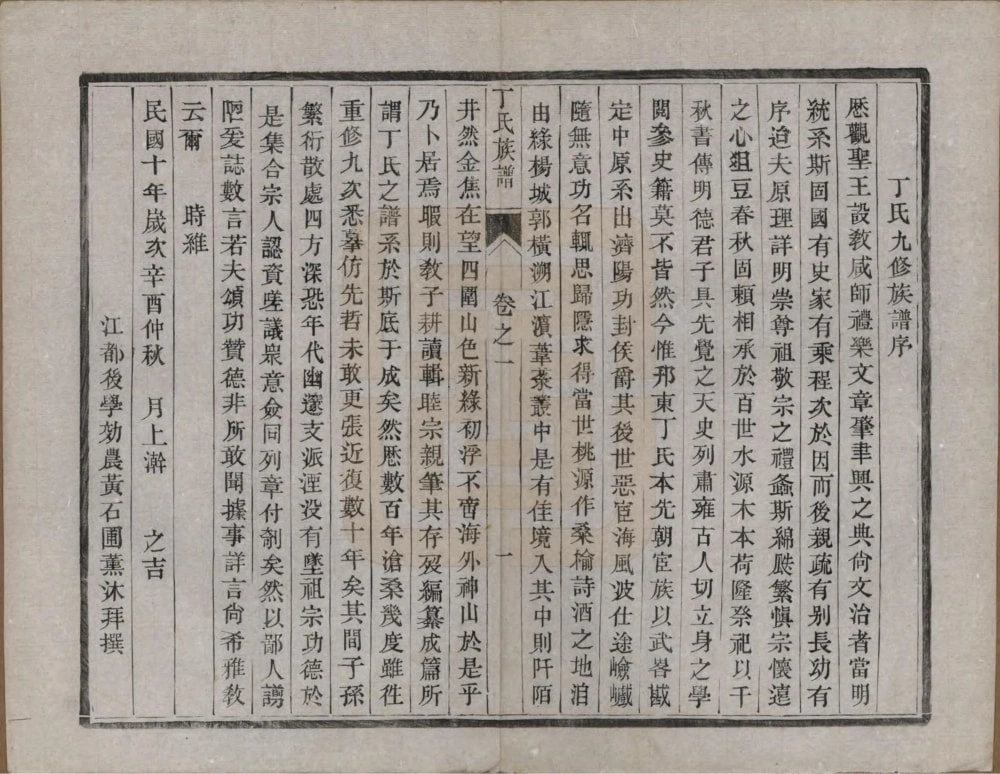 丁氏九修族譜序
厯觀聖王設敎咸師禮樂文章肇聿興之典尙文治者當明
統系斯固國有史家有乘程次於因而後親疏有别長幼有
序迨夫原理詳明崇尊祖敬宗之禮螽斯綿瓞繁愼宗懷遠
之心俎豆春秋固賴相承於百世水源木本荷隆烝祀以千
秋書傳明德君子具先覺之天史列肅雍古人切立身之學
閱參史籍莫不皆然今惟邗東丁氏本先朝宦族以武畧戡
定中原系出濟陽功封侯爵其後世惡宦海風波仕途嶮巇
隨無意功名輒思歸隱求得當世桃源作桑榆詩酒之地洎
由綠楊城郭橫溯江濵葦荼叢中是有佳境入其中則阡陌
井然金焦在望四圍山色新綠初浮不啻海外神山於是乎
乃卜居焉暇則敎子耕讀輯睦宗親筆其存歿編纂成篇所
謂丁氏之譜系於斯底于成矣然厯數百年滄桑幾度雖徃
重修九次悉摹仿先哲未敢更張近復數十年矣其間子孫
繁衍散處四方深恐年代幽遠支派湮没有墜祖宗功德於
是集合宗人認資踀議衆意僉同列章付剞矣然以鄙人謭
陋爰誌數言若夫頌功贊德非所敢聞據事詳言尙希雅敎
云爾 時維
民國十年歲次辛酉仲秋 月上澣 之吉
江都後學効農黃石圃薰沐拜撰
丁氏族譜 卷之一 一